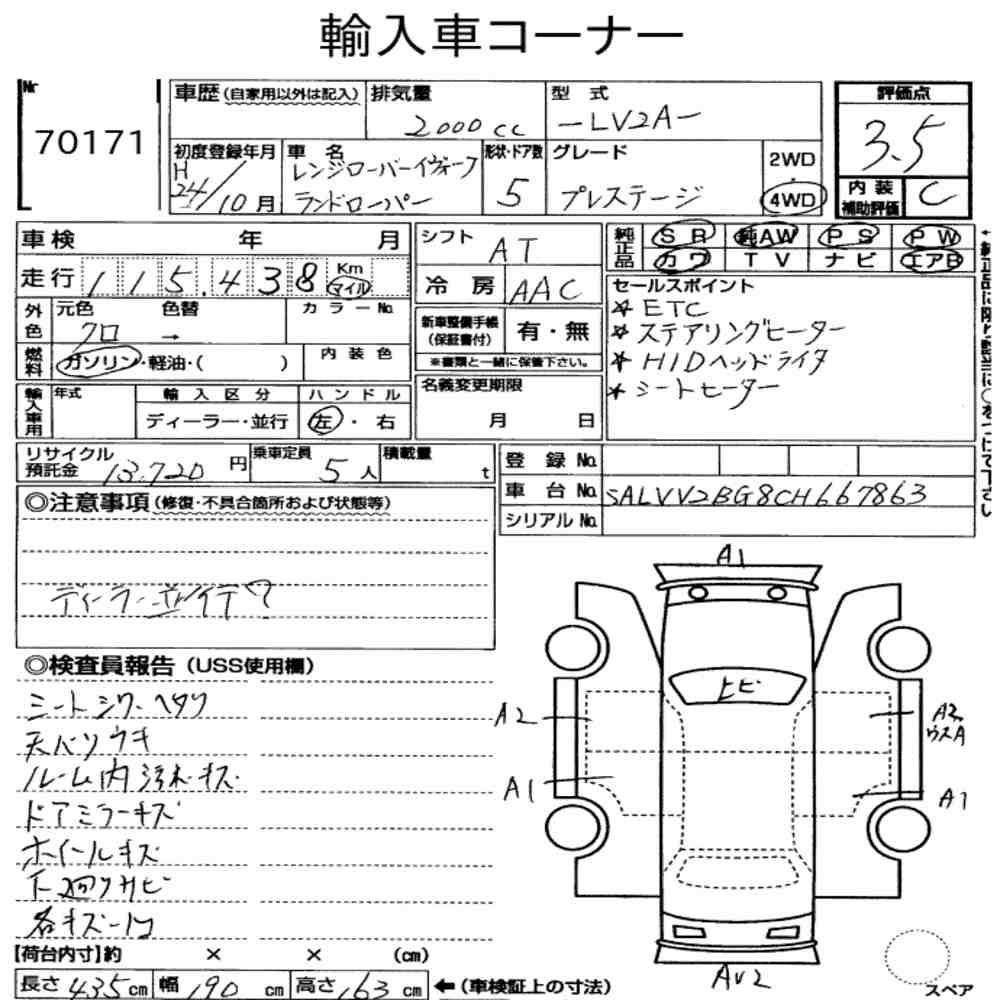 輸入車コーナー
Nr
70171
車歴 (自家用以外は記入)
排気量
2000cc
型式
-LV2A-
評価点
3.5
内装
補助評価
C
初度登録年月
H
24/10月
車名
レンジローバーイヴォーク
ランドローバー
形状・ドア数
5
グレード
プレステージ
2WD
・
4WD
車検 年 月
走行 115,438 Km
マイル
シフト AT
冷房 AAC
純正品
SR 純AW PS PW
カワ TV ナビ エアB
セールスポイント
★ ETC
★ ステアリングヒーター
★ HIDヘッドライタ
★ シートヒーター
外色
元色 色替 カラーNo
クロ →
燃料
ガソリン・軽油・( )
内装色
新車整備手帳
(保証書付)
有・無
※書類と一緒に保管下さい。
輸入車用
年式
輸入区分
ハンドル
ディーラー・並行
左・右
名義変更期限
月 日
リサイクル
預託金 13,720 円
乗車定員 5人
積載量 t
登録No
車台No SALVV2BG8CH667863
シリアルNo
◎注意事項 (修復・不具合箇所および状態等)
◎検査員報告 (USS使用欄)
シートシワ・ヘタリ
天バリウキ
ルーム内汚れ・キズ
ドアミラーキズ
ホイールキズ
下廻りサビ
各キズ凹
A1
トビ
A2
A2
ウスA
A1
A1
AV2
スペア
【荷台内寸】約 × × (cm)
長さ 435cm 幅 190cm 高さ 163cm ←(車検証上の寸法)